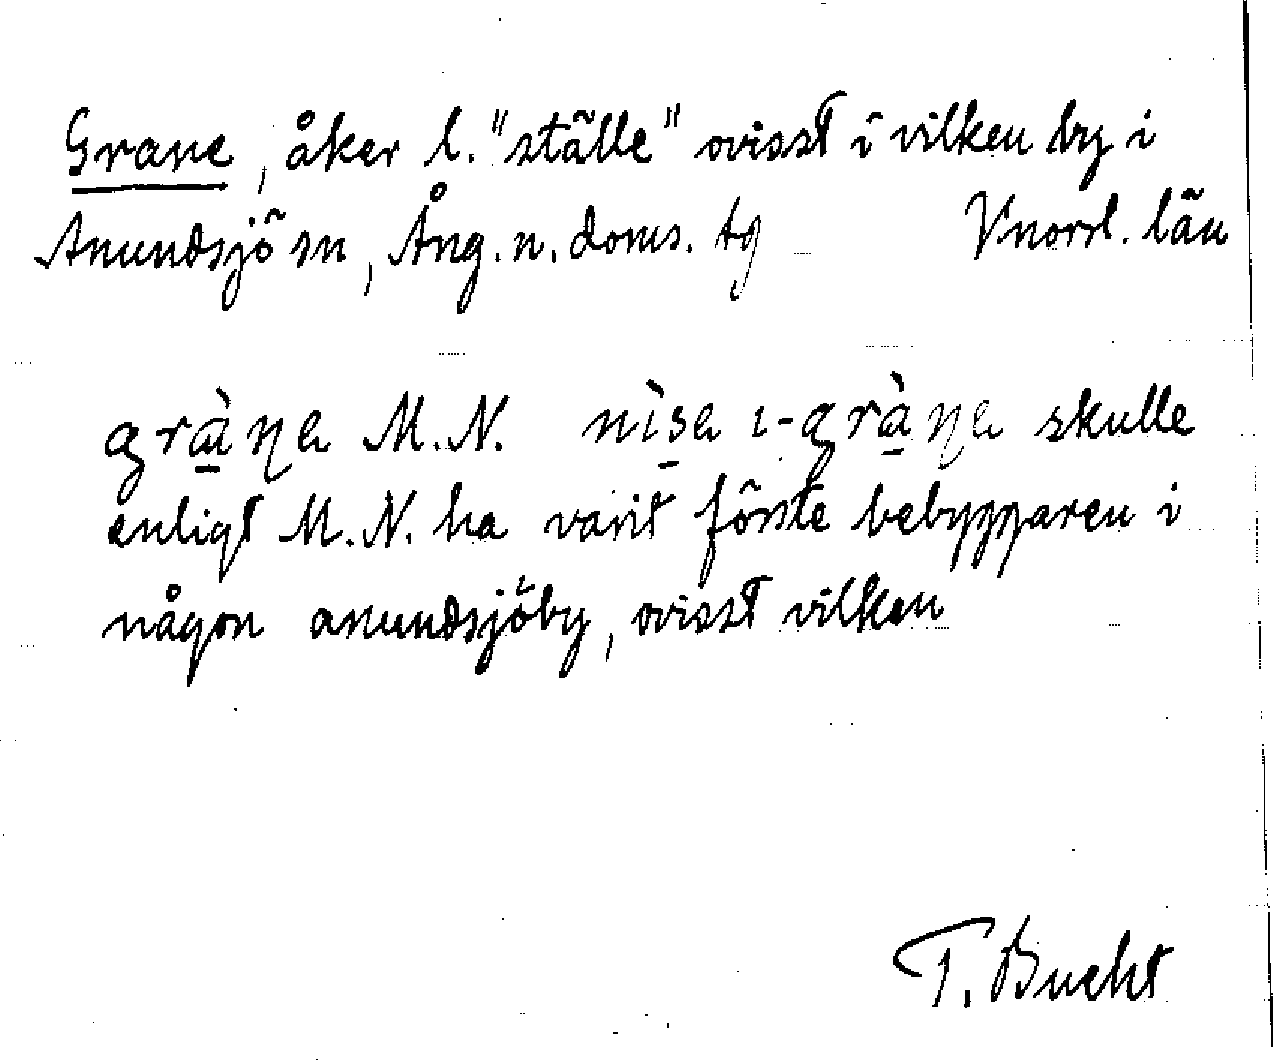 Grane, åker l. "ställe" ovisst i vilken by i
Anundsjö sn, Ång. n. doms. tg Vnorrl. län
gràṉa M.N. nìsa ı-gràṉa skulle
enligt M.N. ha varit förste bebyggaren i
någon anundsjöby, ovisst vilken
T. Bucht